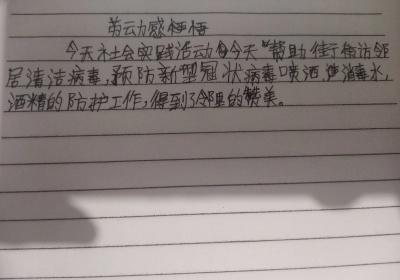 劳动感悟
今天社会实践活动今天"帮助街坊邻
居清洁病毒,预防新型冠状病毒喷洒消毒水,
酒精的防护工作,得到了邻里的赞美。